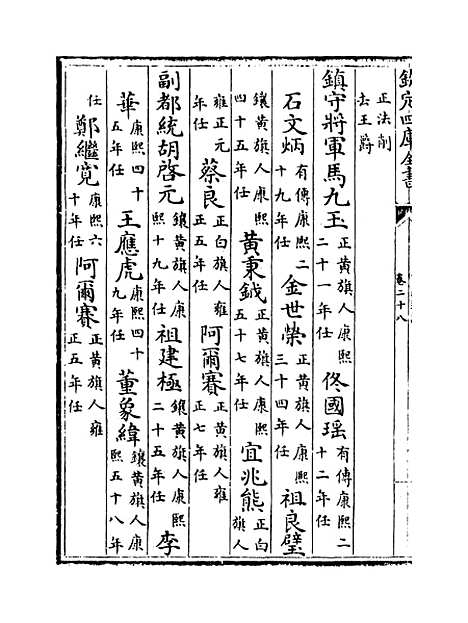 欽定四庫全書
卷二十八
正法削
去王爵
鎮守將軍馬九玉正黃旗人康熙二十一年任 佟國瑶有傳康熙二十二年任
石文炳有傳康熙二十九年任 金世榮正黃旗人康熙三十四年任 祖良璧
鑲黃旗人康熙四十五年任 黃秉鉞正黃旗人康熙五十七年任 宜兆熊正白旗人
雍正元年任 蔡良正白旗人雍正五年任 阿爾賽正黃旗人雍正七年任
副都統胡啓元鑲黃旗人康熙十九年任 祖建極鑲黃旗人康熙二十五年任 李
華康熙四十五年任 王應虎康熙四十九年任 董象緯鑲黃旗人康熙五十八年
任 鄭繼寛康熙六十年任 阿爾賽正黃旗人雍正五年任